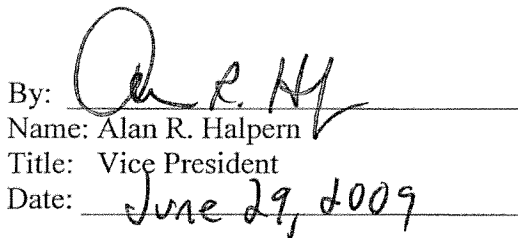 By:
Name: Alan R. Halpern
Title: Vice President
Date: June 29, 2009